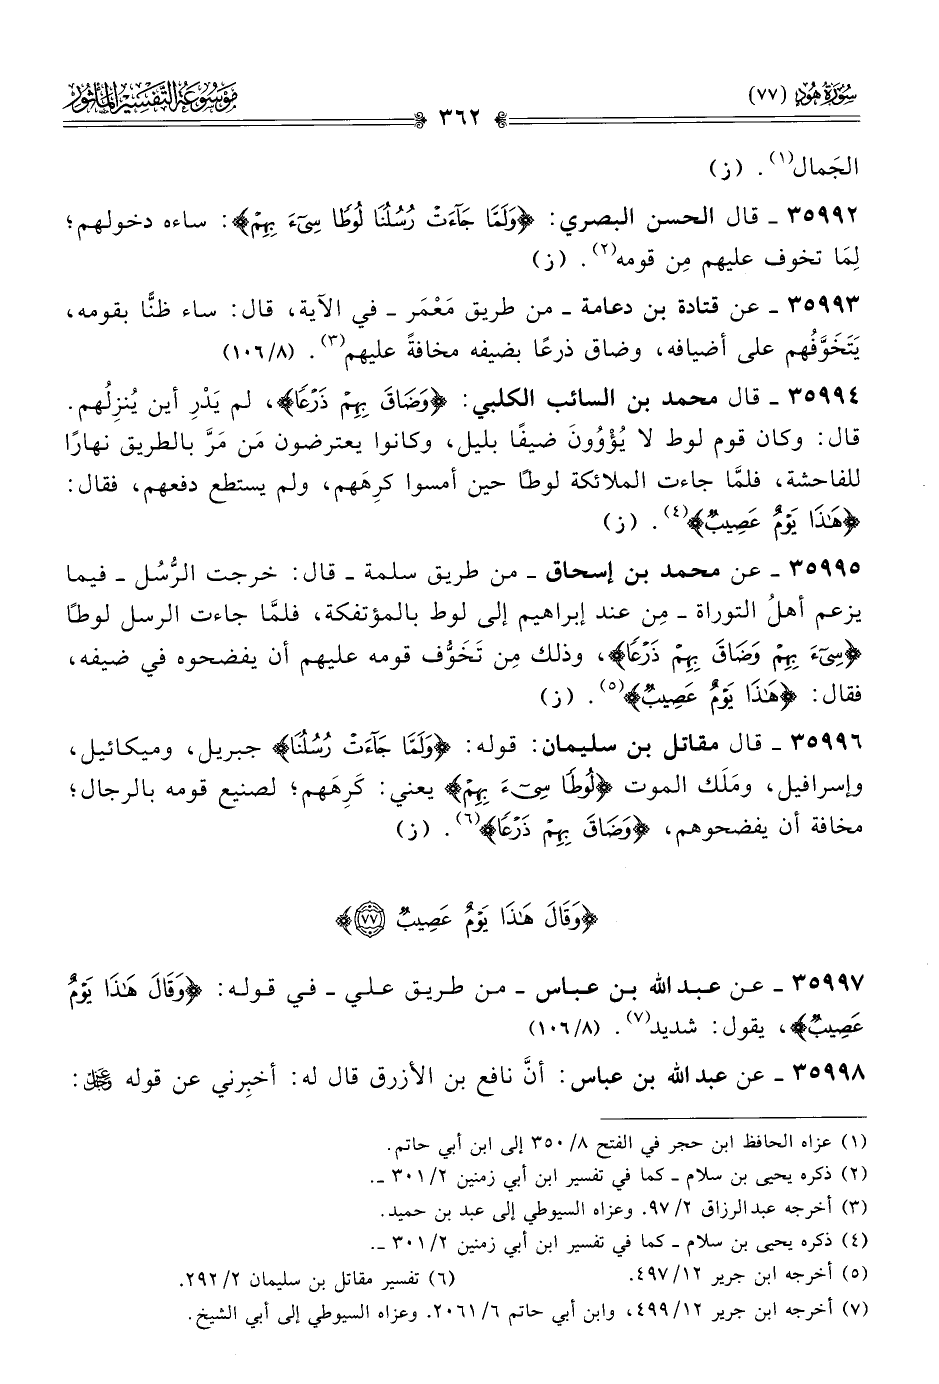 سُورَةُ هُودٍ (٧٧)
٣٦٢
مَوْسُوعَة التَّفْسِيرِ المَأْثُور
الجَمال(١). (ز)
٣٥٩٩٢ ـ قال الحسن البصري: ﴿وَلَمَّا جَآءَتْ رُسُلُنَا لُوطًا سِيٓءَ بِهِمْ﴾: ساءه دخولهم؛
لِمَا تخوف عليهم مِن قومه(٢). (ز)
٣٥٩٩٣ ـ عن قتادة بن دعامة ـ من طريق مَعْمَر ـ في الآية، قال: ساء ظنًّا بقومه،
يَتَخَوَّفُهم على أضيافه، وضاق ذرعًا بضيفه مخافةً عليهم(٣). (١٠٦/٨)
٣٥٩٩٤ ـ قال محمد بن السائب الكلبي: ﴿وَضَاقَ بِهِمْ ذَرْعًا﴾، لم يَدْرِ أين يُنزِلُهم.
قال: وكان قوم لوط لا يُؤْوُونَ ضيفًا بليل، وكانوا يعترضون مَن مَرَّ بالطريق نهارًا
للفاحشة، فلمَّا جاءت الملائكة لوطًا حين أمسوا كرِهَهم، ولم يستطع دفعهم، فقال:
﴿هَٰذَا يَوْمٌ عَصِيبٌ﴾(٤). (ز)
٣٥٩٩٥ ـ عن محمد بن إسحاق ـ من طريق سلمة ـ قال: خرجت الرُّسُل ـ فيما
يزعم أهلُ التوراة ـ مِن عند إبراهيم إلى لوط بالمؤتفكة، فلمَّا جاءت الرسل لوطًا
﴿سِيٓءَ بِهِمْ وَضَاقَ بِهِمْ ذَرْعًا﴾، وذلك مِن تَخَوُّف قومه عليهم أن يفضحوه في ضيفه،
فقال: ﴿هَٰذَا يَوْمٌ عَصِيبٌ﴾(٥). (ز)
٣٥٩٩٦ ـ قال مقاتل بن سليمان: قوله: ﴿وَلَمَّا جَآءَتْ رُسُلُنَا﴾ جبريل، وميكائيل،
وإسرافيل، ومَلَك الموت ﴿لُوطًا سِيٓءَ بِهِمْ﴾ يعني: كَرِهَهم؛ لصنيع قومه بالرجال؛
مخافة أن يفضحوهم، ﴿وَضَاقَ بِهِمْ ذَرْعًا﴾(٦). (ز)
﴿وَقَالَ هَٰذَا يَوْمٌ عَصِيبٌ ٧٧﴾
٣٥٩٩٧ ـ عن عبد الله بن عباس ـ من طريق علي ـ في قوله: ﴿وَقَالَ هَٰذَا يَوْمٌ
عَصِيبٌ﴾، يقول: شديد(٧). (١٠٦/٨)
٣٥٩٩٨ ـ عن عبد الله بن عباس: أنَّ نافع بن الأزرق قال له: أخبِرني عن قوله ﷿:
(١) عزاه الحافظ ابن حجر في الفتح ٣٥٠/٨ إلى ابن أبي حاتم.
(٢) ذكره يحيى بن سلام ـ كما في تفسير ابن أبي زمنين ٣٠١/٢ ـ.
(٣) أخرجه عبدالرزاق ٩٧/٢. وعزاه السيوطي إلى عبد بن حميد.
(٤) ذكره يحيى بن سلام ـ كما في تفسير ابن أبي زمنين ٣٠١/٢ ـ.
(٥) أخرجه ابن جرير ٤٩٧/١٢. (٦) تفسير مقاتل بن سليمان ٢٩٢/٢.
(٧) أخرجه ابن جرير ٤٩٩/١٢، وابن أبي حاتم ٢٠٦١/٦. وعزاه السيوطي إلى أبي الشيخ.